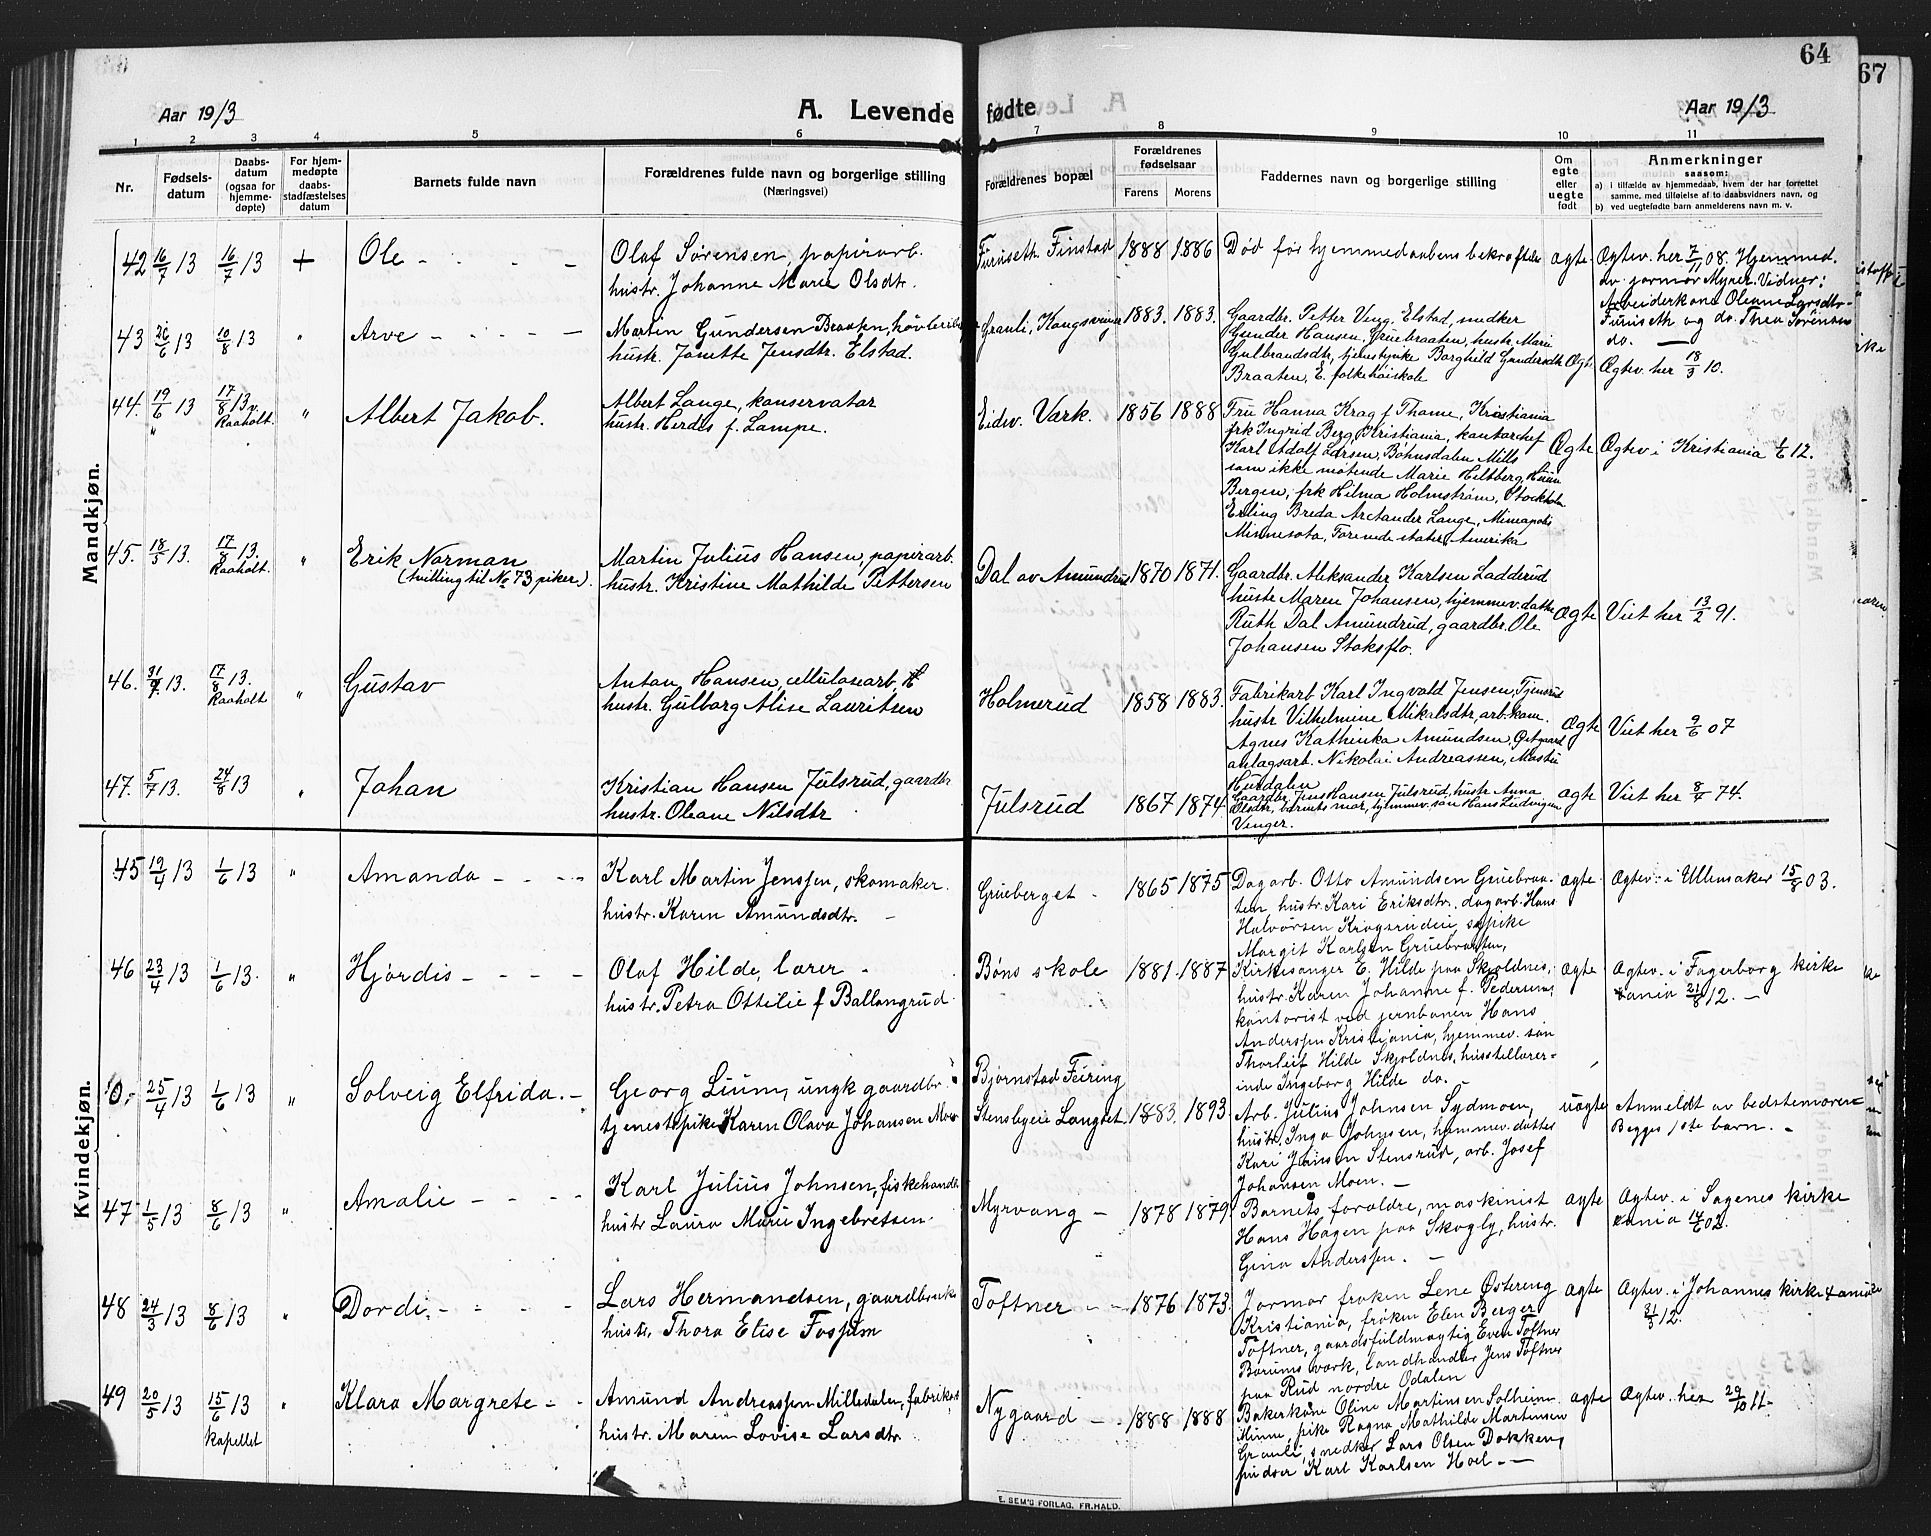 64
67
Aar 1913
A. Levende fødte
Aar 1913
1 2 3 4 5 6 7 8 9 10 11
Nr.
Fødsels-
datum
Daabs-
datum
(ogsaa for
hjemme-
døpte)
For hjem-
medøpte
daabs-
stadfæstelses
datum
Barnets fulde navn
Forældrenes fulde navn og borgerlige stilling
(Næringsvei)
Forældrenes bopæl
Forældrenes
fødselsaar
Farens Morens
Faddernes navn og borgerlige stilling
Om
egte
eller
uegte
født
Anmerkninger
saasom:
a) i tilfælde av hjemmedaab, hvem der har forrettet
samme, med tilføielse af to daabsvidners navn, og
b) ved uegtefødte barn anmelderens navn m. v.
Mandkjøn.
42 16/7 13 16/7 13 + Ole
Olaf Sørensen, papirarb.
hustr. Johanne Marie Olsdtr.
Furuseth Finstad 1888 1886
Død før hjemmedaabens bekræftelse
ægte
Ægtev. her 7/11 08. Hjemmed.
av jormor Myrer. Vidner:
Arbeiderkone Oleane Larsdtr
Furuseth og do. Thea Sørensen
do.
43 26/6 13 10/8 13 " Arve
Martin Gundersen Braaten,
hustr. Jonette Jensdtr. Elstad.
Granli, Kongsvinger 1883. 1883.
Gaardbr. Petter Veng, Elstad, snedker
Gunder Hansen, Gruebraaten, hustr. Mari
Gulbrandsdtr, tjenestpike Borghild Gundersdtr
Braaten, E. folkehøiskole
Ægte
Ægtev. her 18/3 10.
44. 19/6 13 17/8 13 v. Raaholt. " Albert Jakob.
Albert Lange, konservator
hustr. Herdis f. Lampe.
Eidsv. Værk. 1856 1888
Fru Hanna Krag f. Thome, Kristiania
frk Ingrid Berg, Kristiania, kontorchef
Karl Adolf Larsen, Bøhnsdalen Mills
som ikke møtende Marie Heltberg,
Bergen, frk Hilma Holmstrøm, Stockholm
Erling Breda Arctander Lange, Mineapolis
Minnesota, Forenede stater Amerika
Ægte
Ægtev i Kristiania 1/6 12.
45. 18/5 13. 17/8 13. Raaholt. " Erik Norman
(tvilling til No 73 piker).
Martin Julius Hansen, papirarb.
hustr. Kristine Mathilde Pettersen
Dal av Amundrud 1870 1871.
Gaardbr. Aleksander Karlsen Ladderud
hustr Maren Johansen, hjemmev. datter
Ruth Dal Amundrud, gaardbr. Ole
Johansen Stoksflo.
Ægte
Viet her 13/2 91.
46. 31/7 13. 17/8 13. Raaholt " Gustav
Anton Hansen, cellulosearb.
hustr. Gulborg Alise Lauritsen
Holmerud 1858 1883.
Fabrikarb Karl Ingvald Jensen, Tjensrud
hustr Vilhelmine Mikalsdtr, arb. kone
Agnes Kathinka Amundsen, Østgaard
anlagsarb. Nikolai Andreassen,
Hurdalen
Ægte
Viet her 9/6 07
47. 5/7 13. 24/8 13 " Johan
Kristian Hansen Julsrud, gaardbr
hustr. Oleane Nilsdtr
Julsrud 1867 1874.
Gaardbr. Jens Hansen Julsrud, hustr Anna
Olsdtr, barnets mor, hjemmev. søn Hans Ludvigsen
Venger.
ægte
Viet her 8/4 74.
Kvindekjøn.
45 19/4 13 1/6 13 " Amanda
Karl Martin Jenssen, skomaker.
hustr. Karen Amundsdtr.
Grueberget 1865 1875
Dagarb. Otto Amundsen Gruebraa-
ten hustr. Kari Eriksdtr. dagarb. Hans
Halvorsen Krogsrudeie, sypike
Margit Karlsen Gruebraaten,
ægte
Ægtev. i Ullensaker 15/8 03.
46 23/4 13 1/6 13. " Hjørdis
Olaf Hilde, lærer
hustr. Petra Ottilie f Ballangrud.
Bøns skole 1881. 1887
Kirkesanger E. Hilde paa Skjoldnes,
hustr. Karen Johanne f. Pedersen,
kontorist ved jernbanen Hans
Anderssen Kristiania, hjemmev. søn
Thorleif Hilde Skjoldnes, husstellærer-
inde Ingeborg Hilde do.
ægte
Ægtev. i Fagerborg kirke
Xania 21/8 12.
0. 25/4 13 1/6 13 " Solveig Elfrida.
Georg Lium, ungk gaardbr.
tjenestepike Karen Olava Johansen Moen
Bjørnstad Feiring
Stensbyeie Langset 1883. 1893.
Arb. Julius Johnsen Sydmoen,
hustr. Inga Johnsen, hjemmev. datter
Kari Jensen Stensrud, arb. Josef
Johansen Moen.
uægte
Anmeldt av bedstemoren
Begges 1ste barn.
47 1/5 13 8/6 13 " Amalie
Karl Julius Johnsen, fiskehandl.
hustr Laura Marie Ingebretsen.
Myrvang 1878 1879.
Barnets forældre, maskinist
Hans Hagen paa Skogly, hustr.
Gina Anderssen.
ægte
Ægtev. i Sagenes kirke
Xania 14/6 02.
48 24/3 13 8/6 13 " Dordi
Lars Hermandsen, gaardbruk
hustr. Thora Elise Fossum
Toftner 1876 1873.
Jormor frøken Lene Østereng
Kristiania, frøken Elen Berger
Toftner, gaardsfuldmægtig Even Toftner
Bærums værk, landhandler Jens Toftner
paa Rud nordre Odalen
ægte
Ægtev. i Johannes kirke Xania
31/5 12.
49 20/5 13 15/6 13 kapellet " Klara Margrete
Amund Andreassen Milledalen, fabrikarb
hustr. Maren Lovise Larsdtr
Nygaard 1888 1888
Bakerkone Oline Martinsen Solheim
Minne, pike Ragna Mathilde Martinsen
Granli, snedker Lars Olsen Dokken,
pudser Karl Karlsen Hoel.
ægte
Ægtev. her 29/10 11.
E. SEM'S FORLAG, FR.HALD.